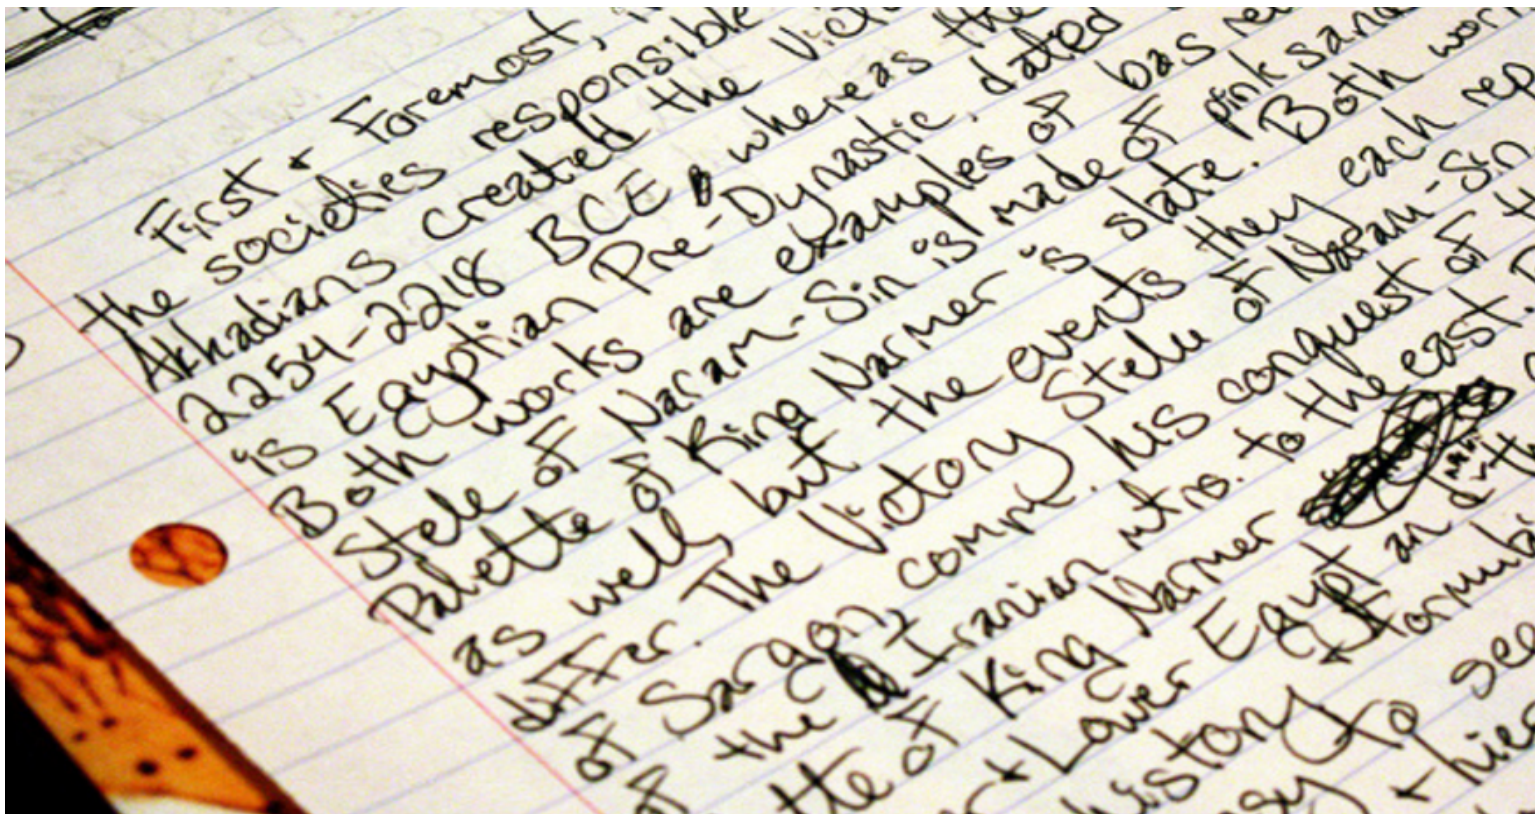 First + Foremost,
the societies responsible
Akkadians created the Vict
2254-2218 BCE, whereas the
is Egyptian Pre-Dynastic, dated
Both works are examples of bas re
Stele of Naram-Sin is made of pink sand
Palette of King Narmer is slate. Both wor
as well, but the events they each rep
differ. The Victory Stele of Naram-Sin
of Sargon, comm. his conquest of t
of the Iranian mtns. to the east.
tte of King Narmer
+ Lower Egypt an
history + formula
to see
+ hier